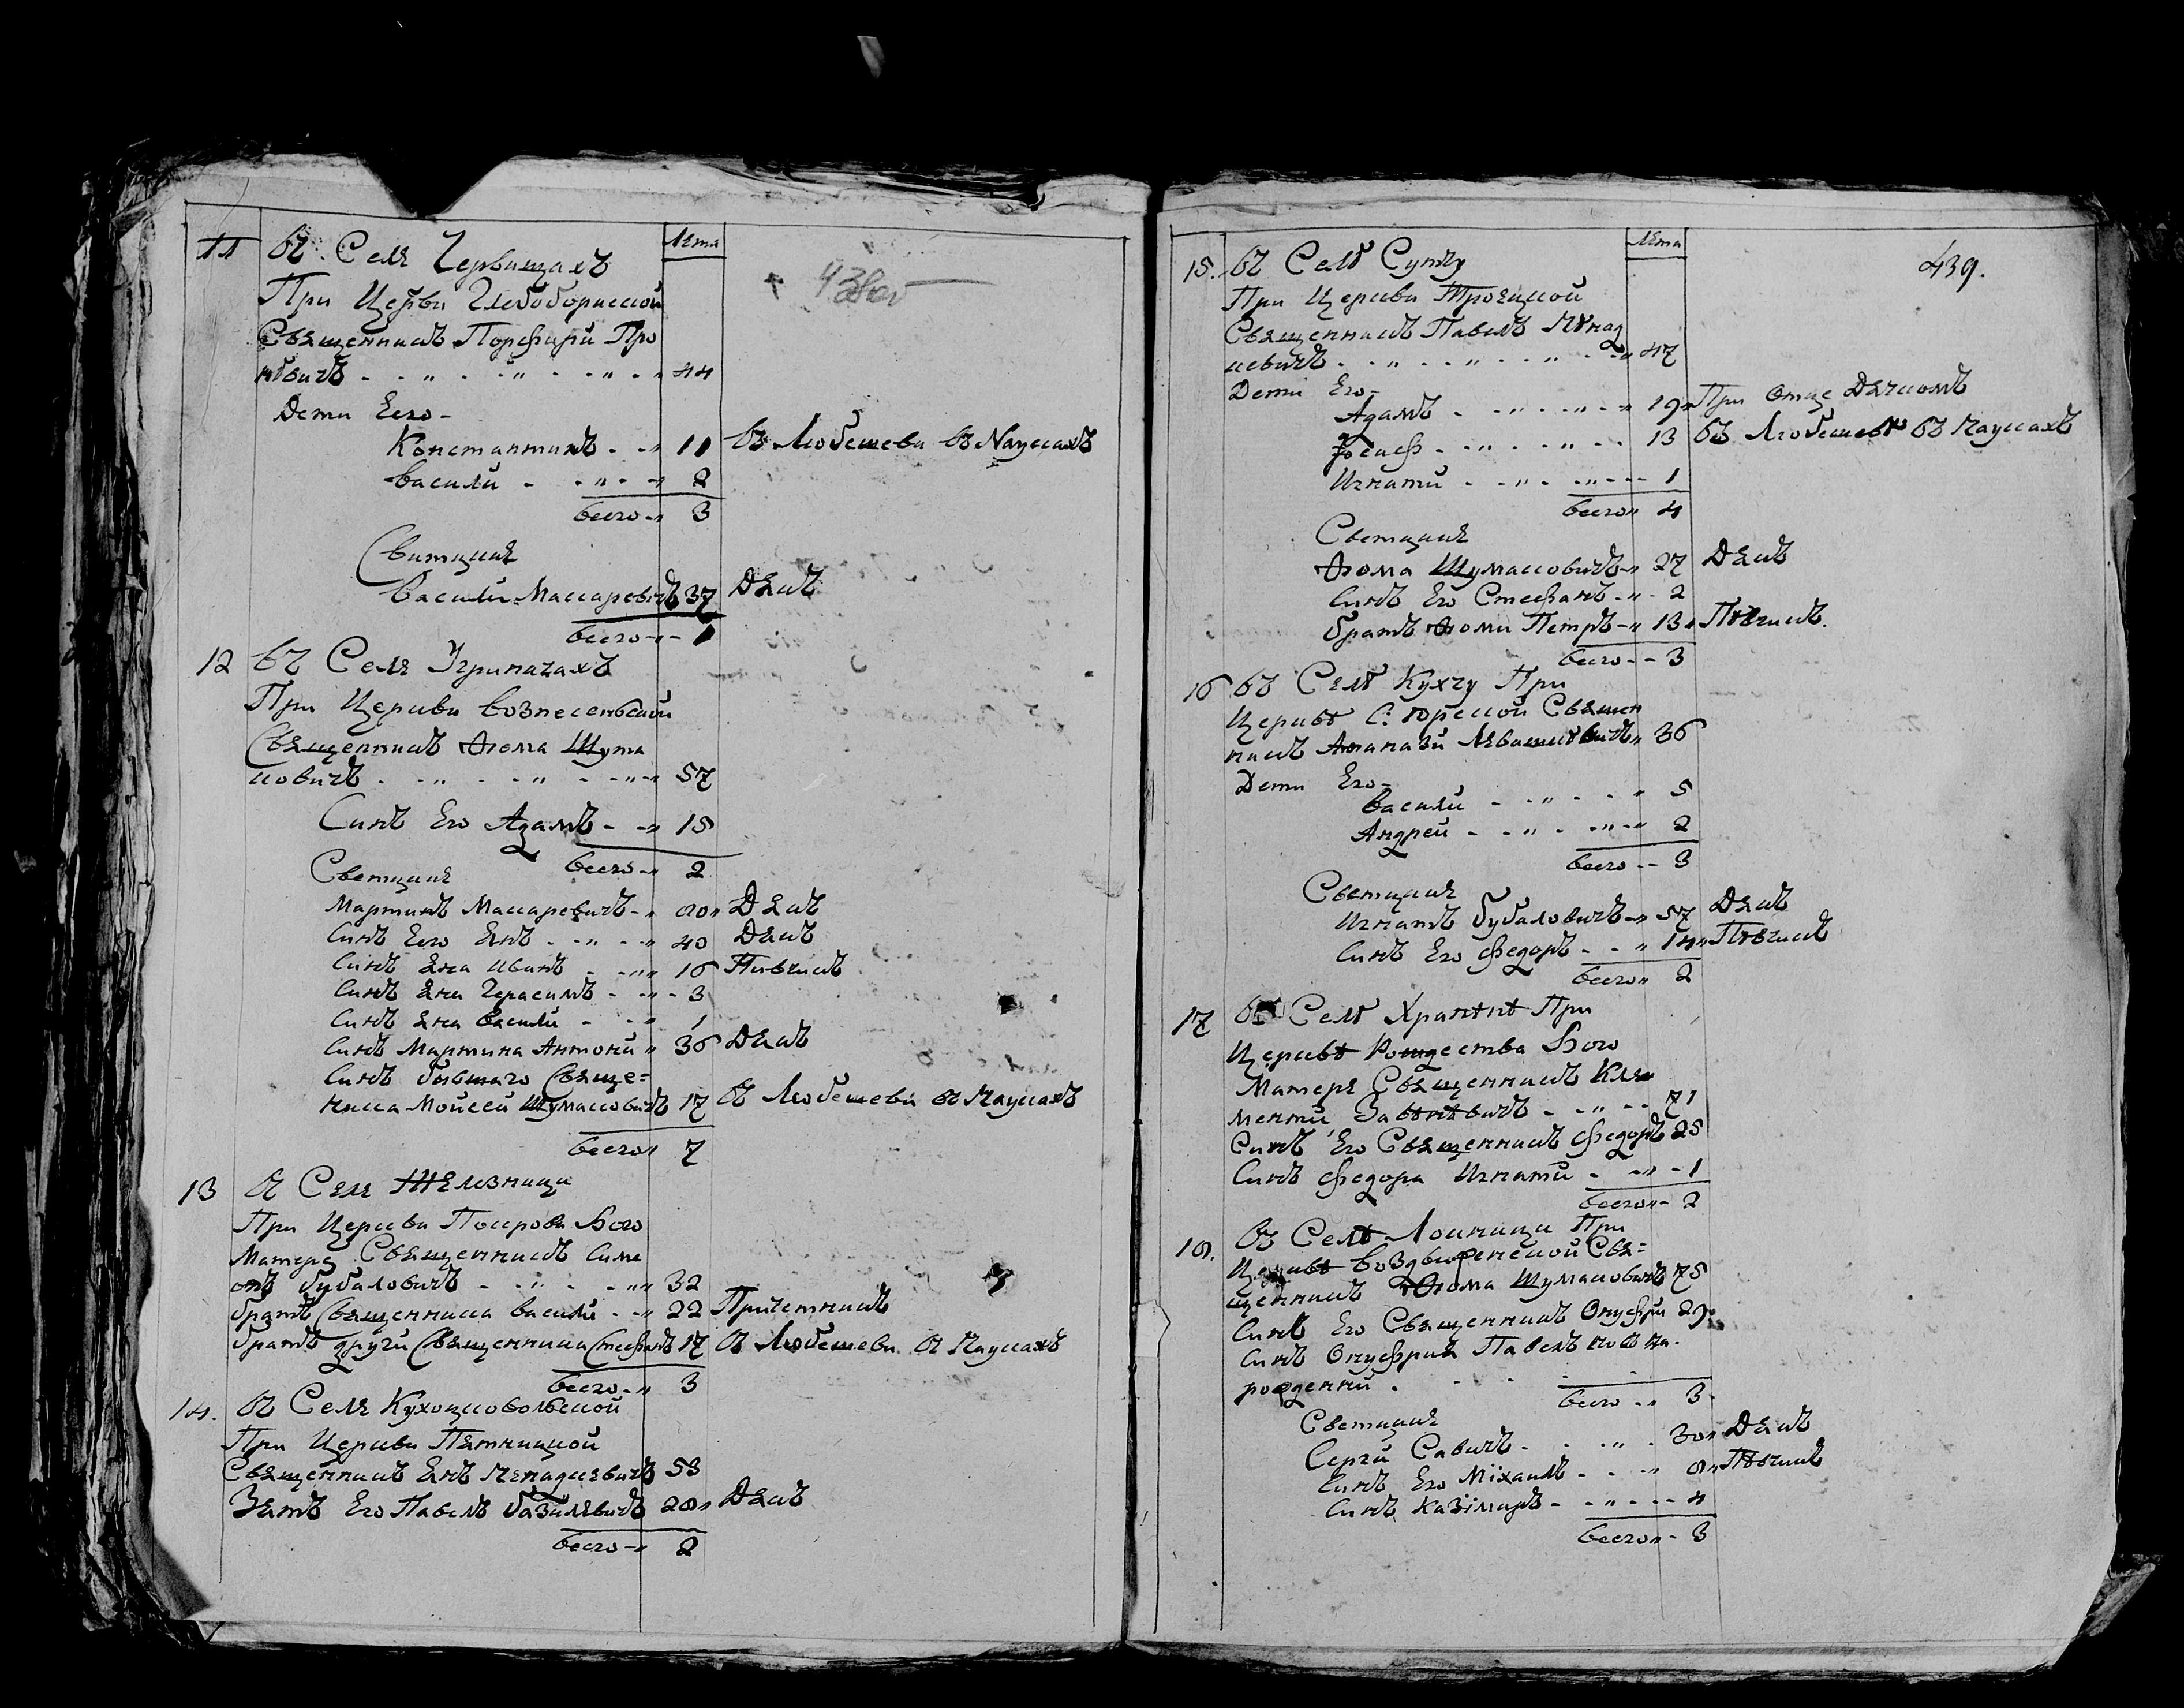 Лѣта
11 въ Селѣ Червищахъ
438об
При Церкви Глебоборисской
Священникъ Порфирй Про
невичъ 44
Дети Его
Константинъ 11 въ Любешеви въ Наукахъ
Василй 2
Всего 3
Свитцкия
Василй Макаревичъ 37 Дякъ
Всего 1
12 Въ Селѣ Угриничахъ
При Церкви Вознесенской
Священникъ Фома Шума
ковичъ 57
Синъ Его Адамъ 15
Всего 2
Светцкия
Мартинъ Макаревичъ 80 Дякъ
Синъ Его Янъ 40 Дякъ
Синъ Яна Иванъ 16 Пивчикъ
Синъ Яна Герасимъ 3
Синъ Яна Василй 1
Синъ Мартина Антонй 36 Дякъ
Синъ бывшаго Свяще=
ника Мойсей Шумаковичъ 17 въ Любешеви въ Наукахъ
Всего 7
13 въ Селѣ Желѣзници
При Церкви Покрова Бого
Матерѣ Священникъ Симе
онъ Бубаловичъ 32
братъ Священника Василй 22 Причетникъ
братъ другй Священника Стефанъ 17 въ Любешеви въ Наукахъ
Всего 3
14. въ Селѣ Кухоцковольской
При Церкви Пятницкой
Священникъ Янъ Генадиевичъ 53
Зять Его Павелъ Базилевичъ 28 Дякъ
Всего 2
Лѣта
439.
15. въ Селѣ Сутку
При Церкви Троицкой
Священникъ Павелъ Генад
иевичъ 47
Дети Его
Адамъ 19 При Отце Дячкомъ
Іосиф 13 въ Любешевѣ въ Наукахъ
Игнатй 1
Всего 4
Светцкия
Фома Шумаковичъ 27 Дякъ
Синъ Его Стефанъ 2
братъ Фоми Петръ 13 Пѣвчикъ.
Всего 3
16 въ Селѣ Кухчу При
Церквѣ С: Юрской Священ
никъ Афаназй Левашкевичъ 36
Дети Его
Василй 5
Андрей 2
Всего 3
Светцкия
Игнатъ Бубаловичъ 57 Дякъ
Синъ Его Федоръ 14 Пѣвчикъ
Всего 2
17 въ Селѣ Храпинѣ При
Церквѣ Рождества Бого
Матерѣ Священникъ Кли
ментй 71
Синъ Его Священникъ Федоръ 25
Синъ Федора Игнатй 1
Всего 2
18. въ Селѣ Локници При
Церквѣ Воздвиженской Свя=
щенникъ Фома Шумаковичъ 75
Синъ Его Священникъ Онуфрй 29
Синъ Онуфрия Павелъ новона=
рожденнй
Всего 3
Светцкия
Сергй Савичъ 30 Дякъ
Синъ Его Міхаилъ 8 Пѣвчикъ
Синъ Казіміръ 4
Всего 3